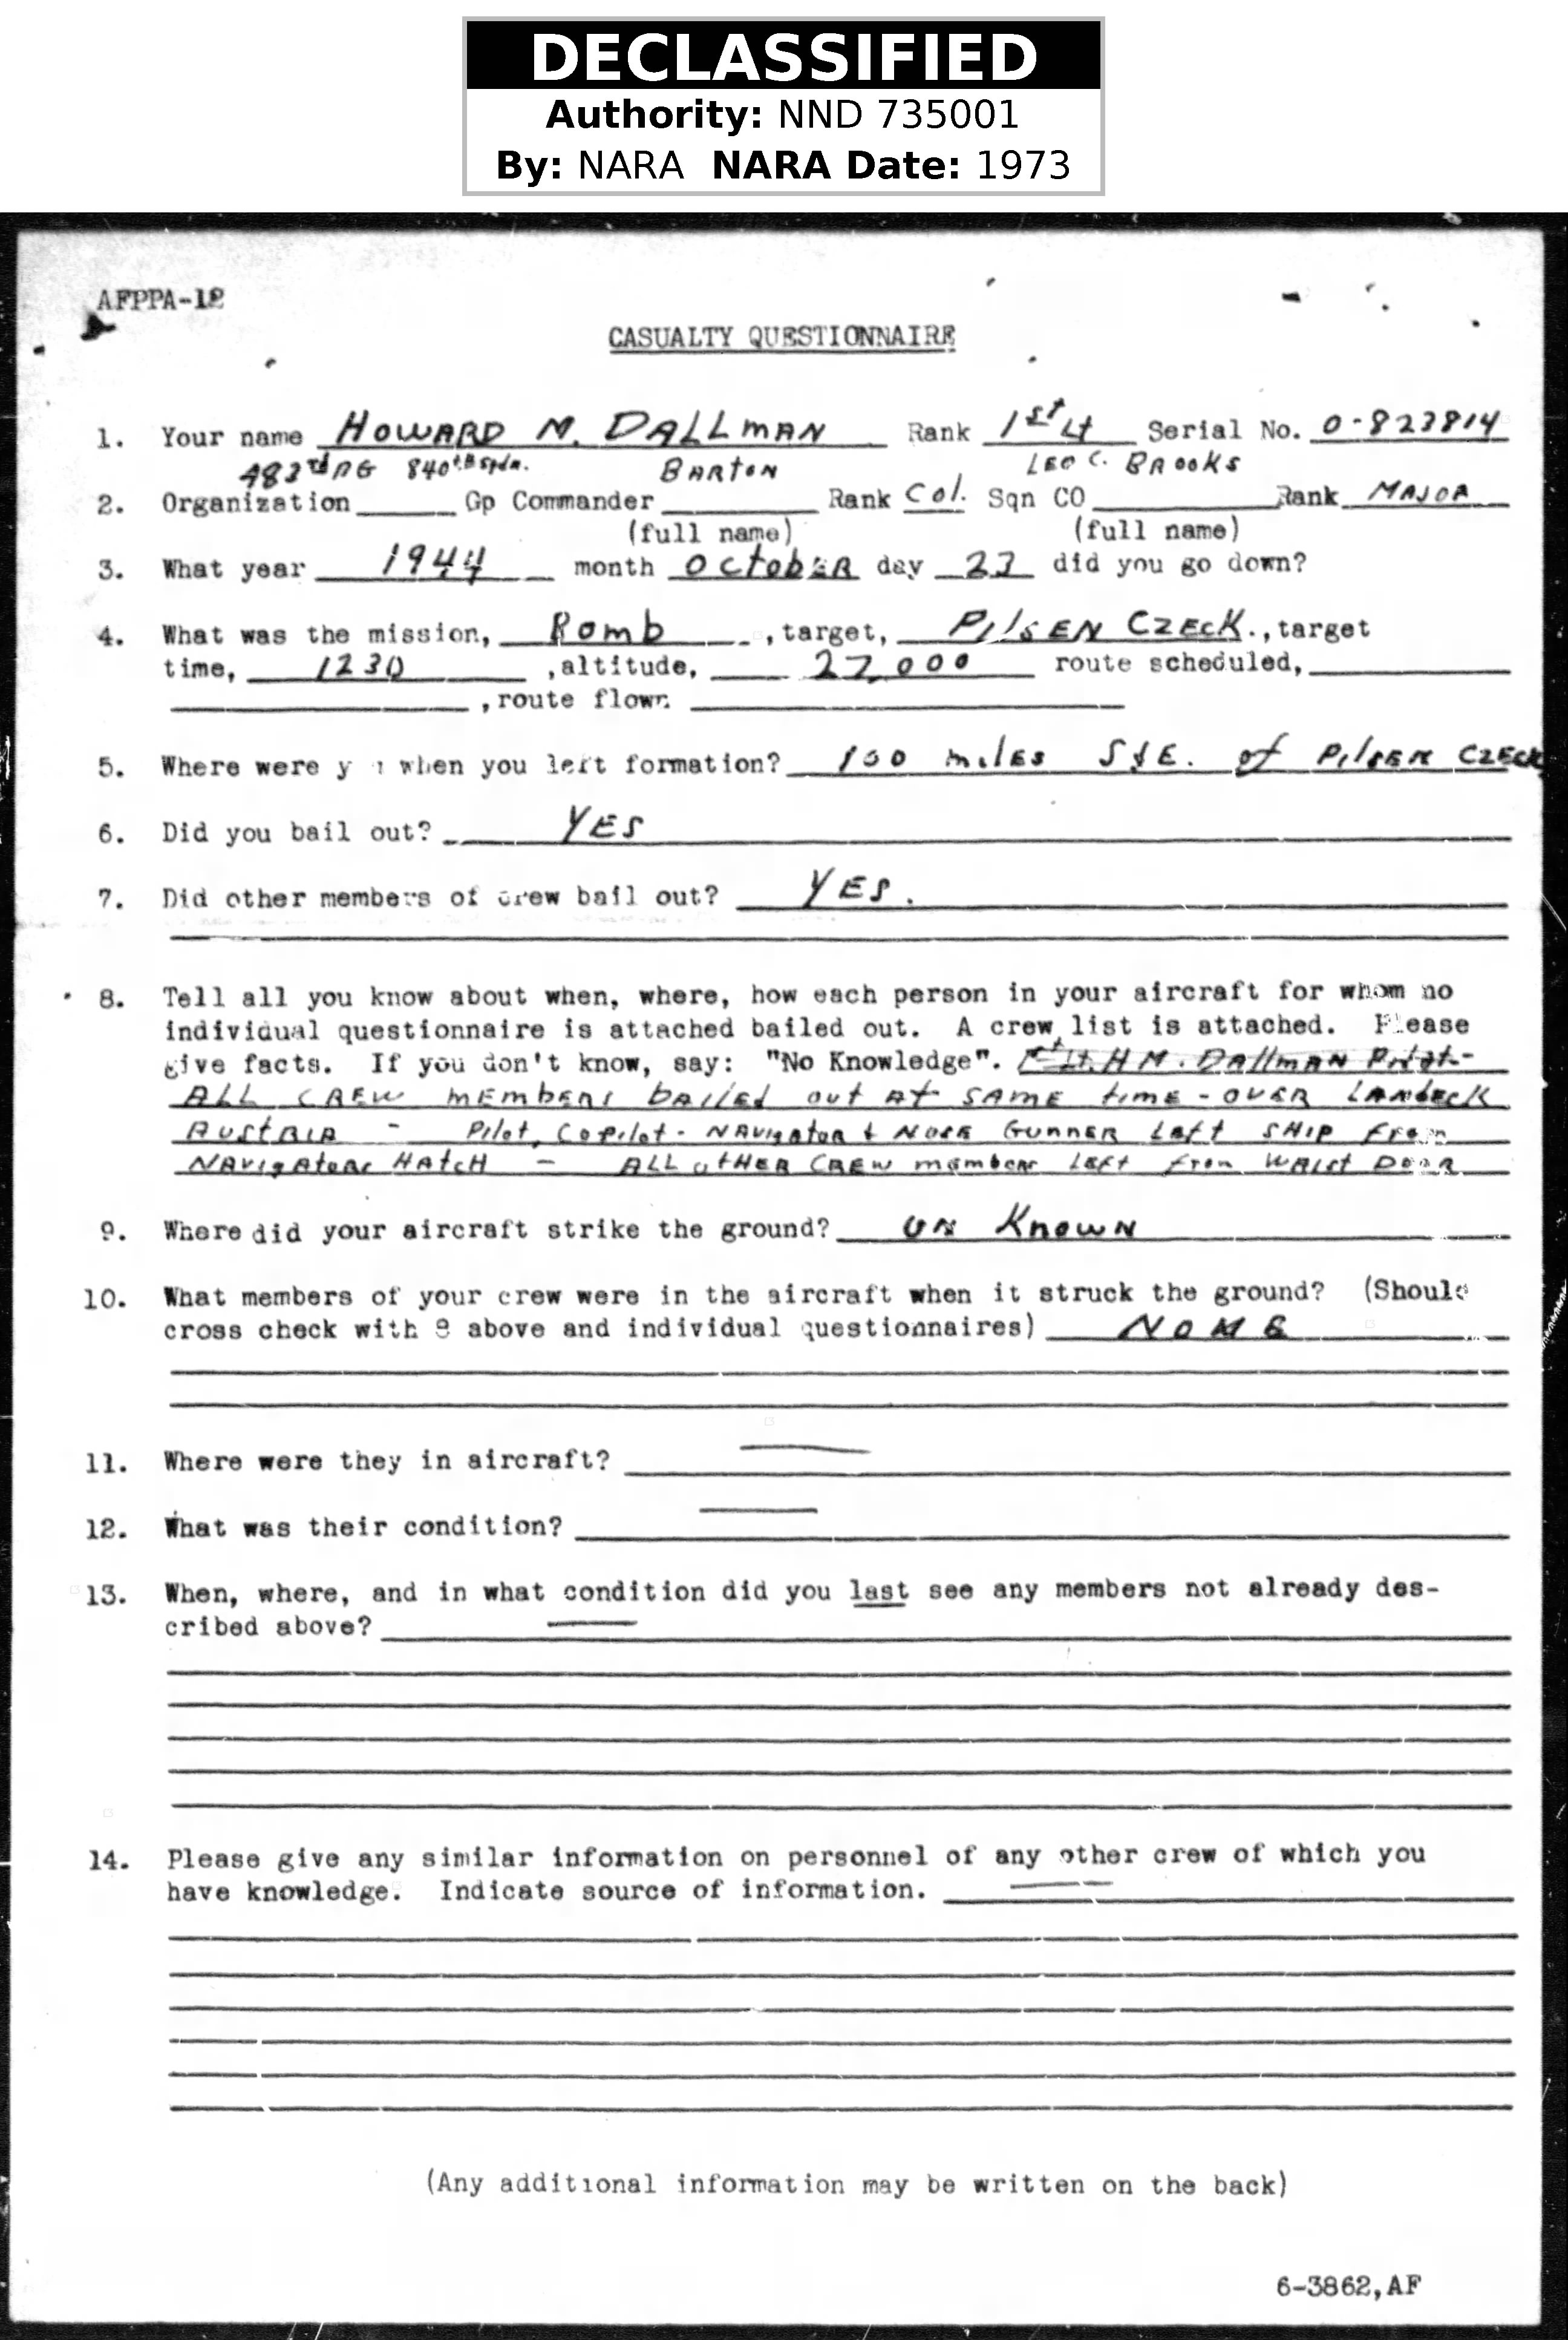 DECLASSIFIED
Authority: NND 735001
By: NARA NARA Date: 1973
AFPPA-12
CASUALTY QUESTIONNAIRE
1. Your name HOWARD M. DALLMAN Rank 1st Lt Serial No. O-823814
483rd BG 840th BSqdn. BARTON LEO C. BROOKS
2. Organization Gp Commander Rank Col. Sqn CO Rank MAJOR
(full name) (full name)
3. What year 1944 month OctobER day 23 did you go down?
4. What was the mission, Bomb , target, PilsEN CZEcK. , target
time, 1230 , altitude, 27,000 route scheduled,
, route flown
5. Where were y when you left formation? 100 milEs S&E. of PilsEN CZECK
6. Did you bail out? YES
7. Did other members of crew bail out? YES.
8. Tell all you know about when, where, how each person in your aircraft for whom no
individual questionnaire is attached bailed out. A crew list is attached. Please
give facts. If you don't know, say: "No Knowledge". 1st Lt. H M. DallmAN Pilot-
ALL CREW mEmbErs bailEd out At SAME timE - OVER LANdECK
AUStRIA - Pilot, CoPilot - NAVigator & NOSE GUNNER LEft SHIP From
NAVigAtors HAtcH - ALL otHER CREW mEmbErs LEft From WAIst DOOR
9. Where did your aircraft strike the ground? UN KnowN
10. What members of your crew were in the aircraft when it struck the ground? (Should
cross check with 8 above and individual questionnaires) NONE
11. Where were they in aircraft? —
12. What was their condition? —
13. When, where, and in what condition did you last see any members not already des-
cribed above? —
14. Please give any similar information on personnel of any other crew of which you
have knowledge. Indicate source of information. —
(Any additional information may be written on the back)
6-3862,AF